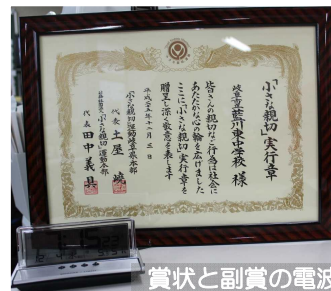 「小さな親切」実行章
岐阜市立藍川東中学校 様
皆さんの親切なご行為は社会に
あたたかな心の輪を広げました
ここに「小さな親切」実行章を
贈呈し深く敬意を表します
平成二十五年十二月三日
「小さな親切」運動岐阜県本部
代表 土屋 嶢
公益社団法人「小さな親切」運動本部
代表 田中義具
賞状と副賞の電波